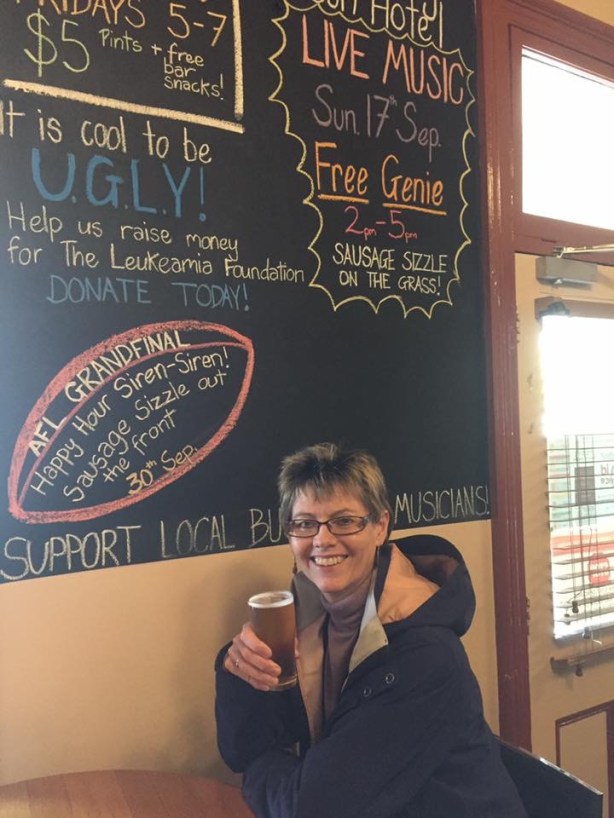 FRIDAYS 5-7
$5 Pints + free
bar
snacks!
It is cool to be
U.G.L.Y!
Help us raise money
for The Leukeamia Foundation
DONATE TODAY!
Hotel
LIVE MUSIC
Sun 17th Sep.
Free Genie
2pm-5pm
SAUSAGE SIZZLE
ON THE GRASS!
AFL GRANDFINAL
Happy Hour Siren-Siren!
Sausage Sizzle out
the front
30th Sep
SUPPORT LOCAL BU MUSICIANS!